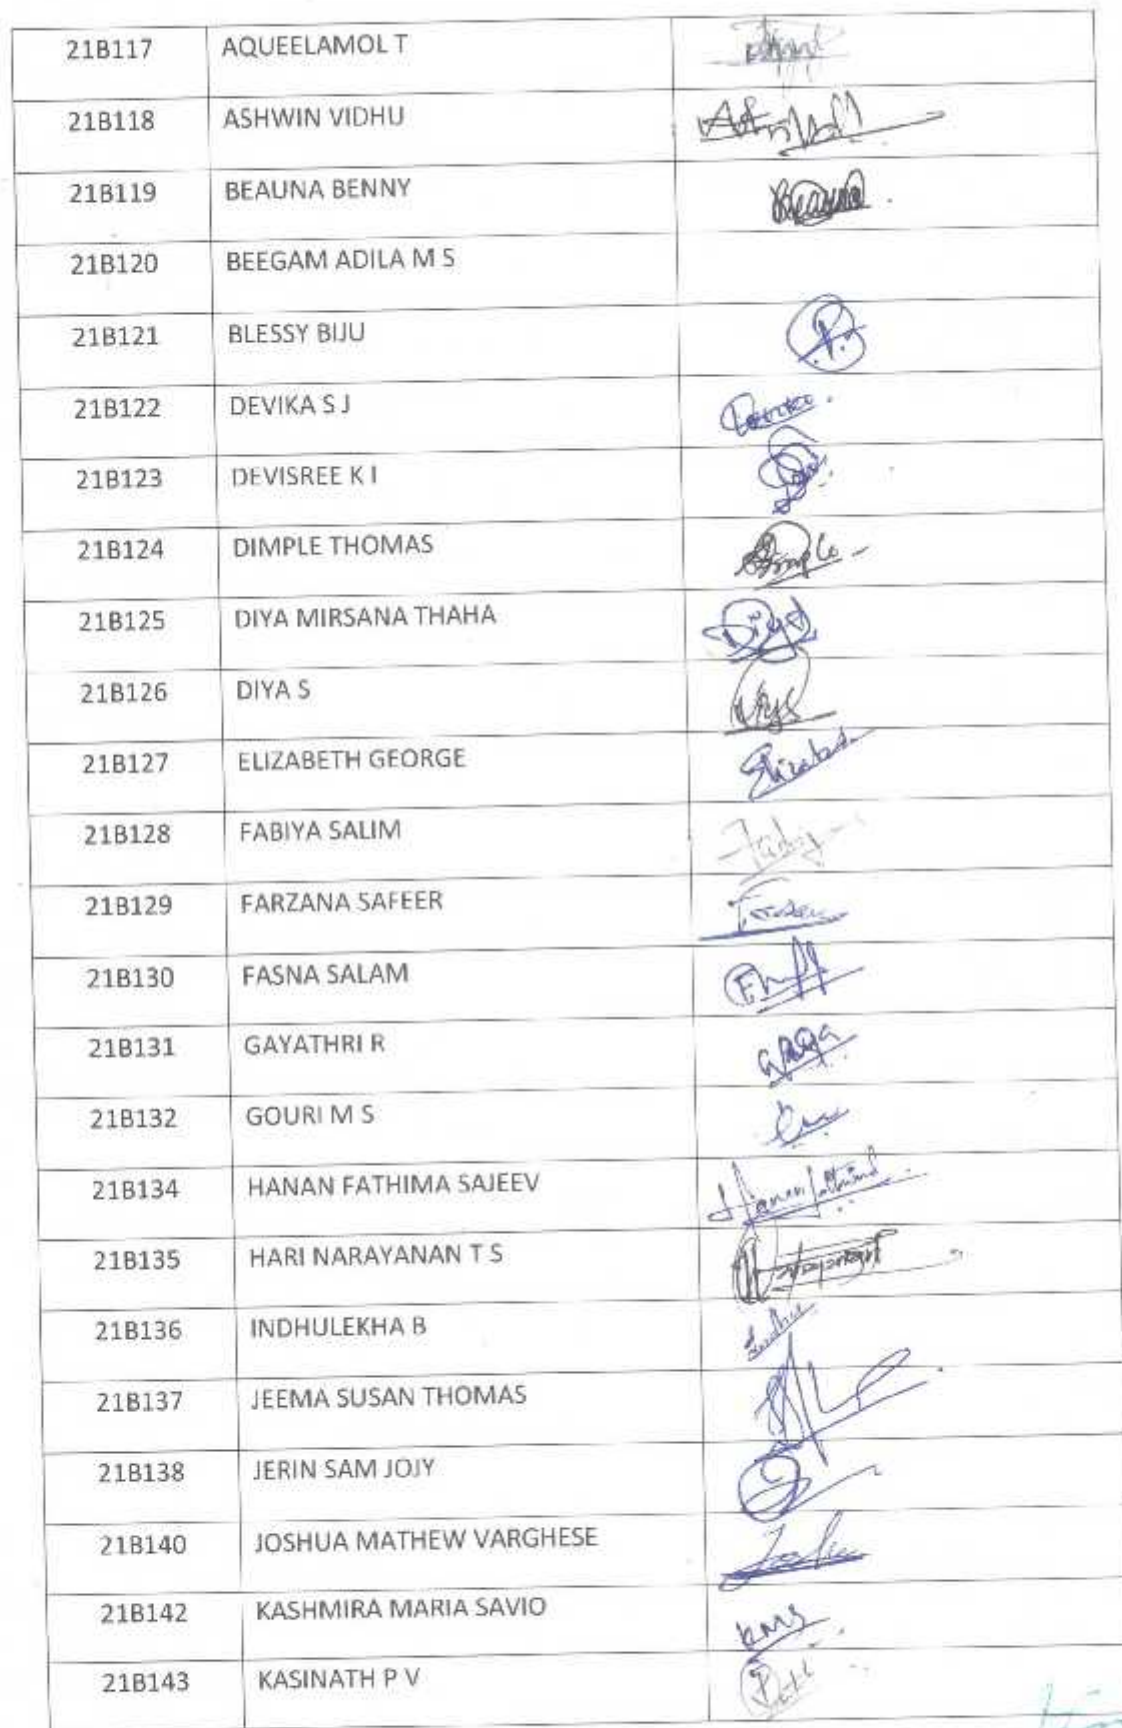 21B117 AQUEELAMOL T
21B118 ASHWIN VIDHU
21B119 BEAUNA BENNY Beauna
21B120 BEEGAM ADILA M S
21B121 BLESSY BIJU
21B122 DEVIKA S J Devika
21B123 DEVISREE K I
21B124 DIMPLE THOMAS Dimple
21B125 DIYA MIRSANA THAHA Diya
21B126 DIYA S
21B127 ELIZABETH GEORGE Elizabeth
21B128 FABIYA SALIM
21B129 FARZANA SAFEER
21B130 FASNA SALAM
21B131 GAYATHRI R
21B132 GOURI M S
21B134 HANAN FATHIMA SAJEEV Hanan Fathima
21B135 HARI NARAYANAN T S
21B136 INDHULEKHA B Indhu
21B137 JEEMA SUSAN THOMAS
21B138 JERIN SAM JOJY
21B140 JOSHUA MATHEW VARGHESE
21B142 KASHMIRA MARIA SAVIO KMS
21B143 KASINATH P V